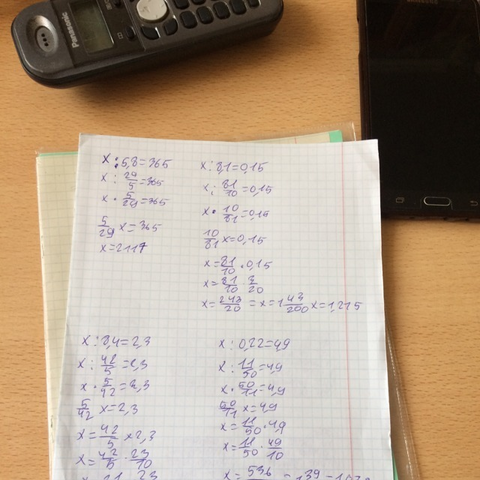 Panasonic
x:5,8=365
x:29/5=365
x·5/29=365
5/29 x=365
x=2117
x:8,1=0,15
x:81/10=0,15
x·10/81=0,15
10/81 x=0,15
x=81/10·0,15
x=81/10 3/20
x=243/20=x=1 43/200 x=1,215
x:8,4=2,3
x:42/5=2,3
x·5/42=2,3
5/42 x=2,3
x=42/5×2,3
x=42/5·23/10
x:0,22=4,9
x:11/50=4,9
x·50/11=4,9
50/11 x=4,9
x=11/50·4,9
x=11/50·49/10